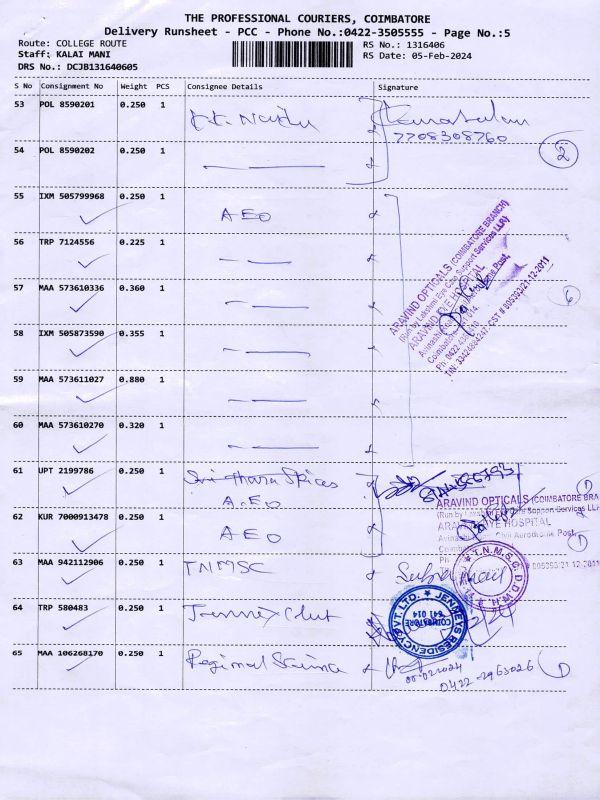 THE PROFESSIONAL COURIERS, COIMBATORE
Delivery Runsheet - PCC - Phone No.:0422-3505555 - Page No.:5
Route: COLLEGE ROUTE
RS No.: 1316406
Staff: KALAI MANI
RS Date: 05-Feb-2024
DRS No.: DCJB131640605
S No Consignment No Weight PCS Consignee Details Signature
53 POL 8590201 0.250 1 K.K. Naidu
7708308760
54 POL 8590202 0.250 1
2
55 IXM 505799968 0.250 1 AEO
56 TRP 7124556 0.225 1
57 MAA 573610336 0.360 1
6
58 IXM 505873590 0.355 1
59 MAA 573611027 0.880 1
60 MAA 573610270 0.320 1
ARAVIND OPTICALS (COIMBATORE BRANCH)
(Run by Lakshmi Eye Care Support Services LLP)
ARAVIND EYE HOSPITAL
Coimbatore - 641 014
61 UPT 2199786 0.250 1 Sri tharu Spices
A.EO
62 KUR 7000913478 0.250 1 AEO
ARAVIND OPTICALS (COIMBATORE BRA
Support Services LL
EYE HOSPITAL
Civil Aerodrome Post,
63 MAA 942112906 0.250 1 TNMSC
64 TRP 580483 0.250 1 Jenneys Club
JENNEYS RESIDENCY PVT. LTD.
COIMBATORE
641 014
65 MAA 106268170 0.250 1 Regional Science
1
0422-2963026